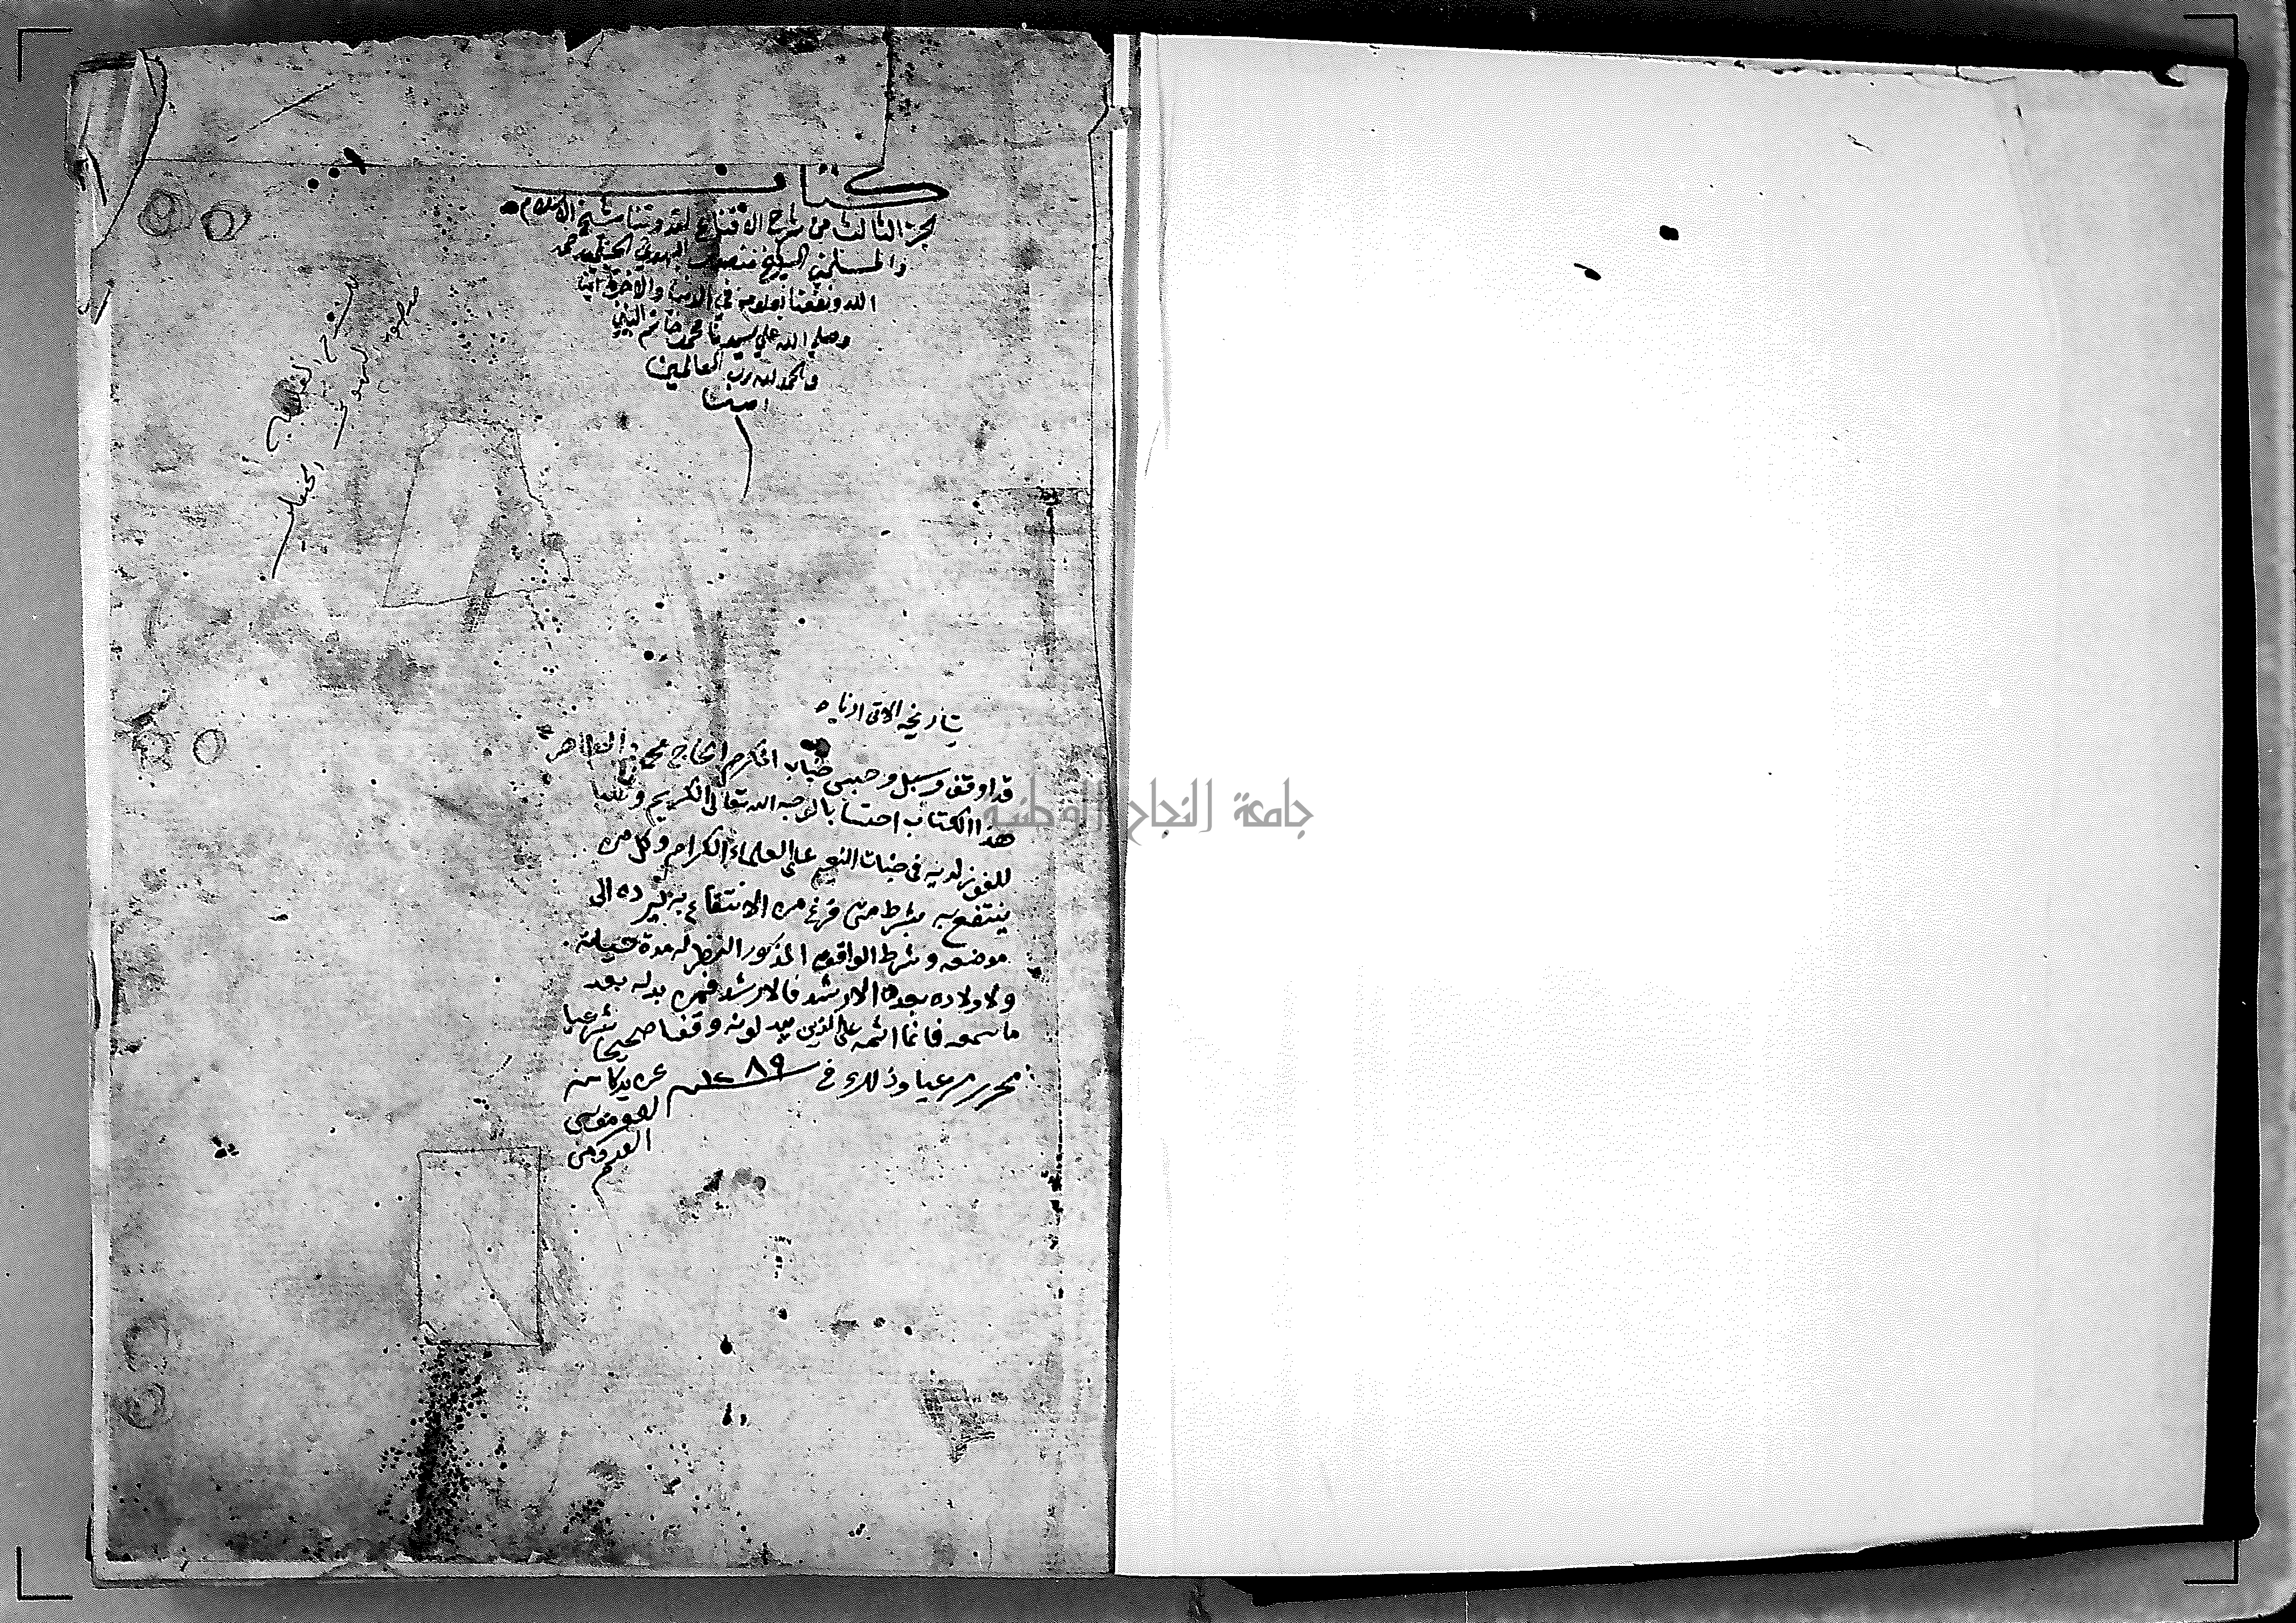 كتاب
الجزء الثالث من شرح الاقناع لقدوتنا شيخ الاسلام
والمسلمين الشيخ منصور البهوتي الحنبلي رحمه
الله ونفعنا بعلومه في الدنيا والاخرة امين
وصلى الله على سيدنا محمد خاتم النبيين
والحمد لله رب العالمين
امين
منصور البهوتي
الحنبلي
بتاريخه الاتى ادناه
قد اوقف وسبل وحبس جناب المكرم الحاج محمد
هذا الكتاب احتسابا لوجه الله تعالى الكريم وطلبا
للفوز لديه في جنات النعيم على العلماء الكرام وكل من
ينتفع به بشرط متى فرغ من الانتفاع به يرده الى
موضعه وشرط الواقف المذكور النظر له مدة حياته
ولاولاده بعده الارشد فالارشد فمن بدله بعد
ما سمعه فانما اثمه على الذين يبدلونه وقفا صحيحا شرعيا
محررا مرعيا وذلك في سنة ١٢٨٩ عن يد كاتبه
جامعة النجاح الوطنية